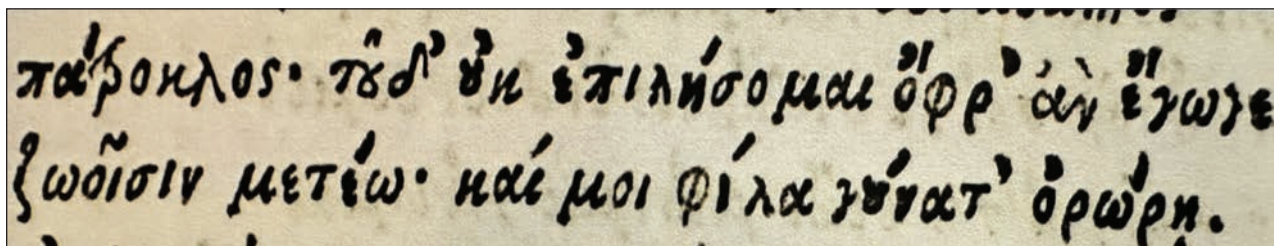 πάτροκλος· τοῦ δ' οὐκ ἐπιλήσομαι ὄφρ' ἀν ἔγωγε
ζωοῖσιν μετέω· καί μοι φίλα γούνατ' ὀρώρῃ.